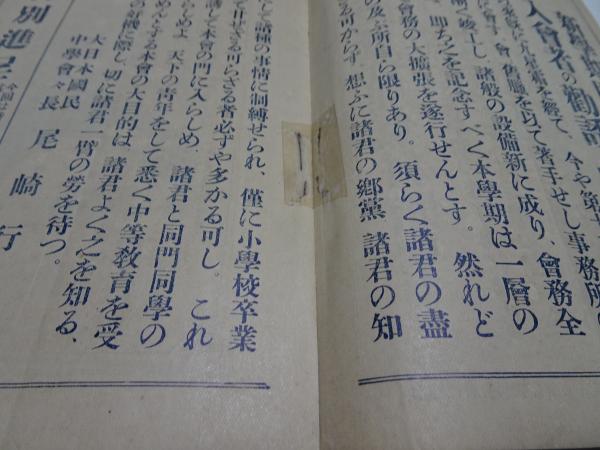 入會者の勸誘
會舊臘を以て着手せし事務所
竣工し、諸般の設備新に成り、會務全
即ち之を記念すべく本學期は一層の
會務の大擴張を遂行せんとす。然れど
及ぶ所自ら限りあり。須らく諸君の盡
可からず。想ふに諸君の鄕黨、諸君の知
して諸種の事情に制縛せられ、僅に小學校卒業
て甘ぜざる可らざる者必ずや多かる可し。これ
誘して本會の門に入らしめ、諸君と同門同學の
らしめよ。天下の青年をして悉く中等敎育を受
めんとする本會の大目的は、諸君よく之を知る、
の擧に際し、切に諸君一臂の勞を待つ。
大日本國民
中學會々長
尾崎行
別進呈